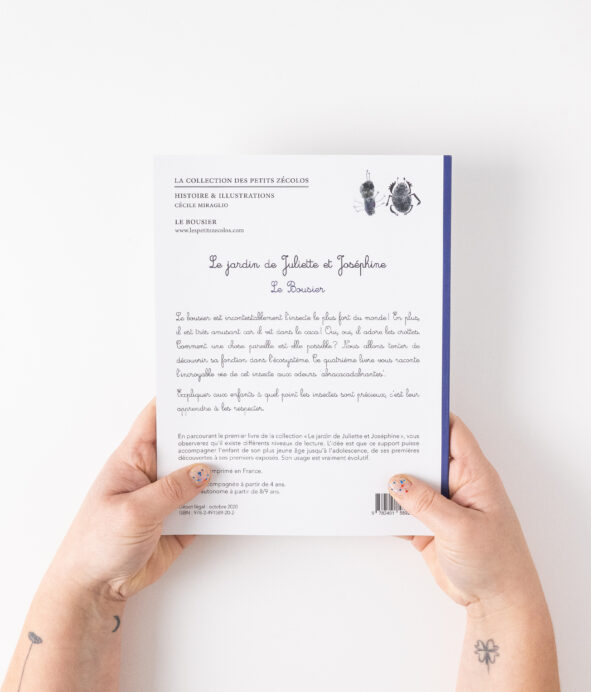 LA COLLECTION DES PETITS ZÉCOLOS
HISTOIRE & ILLUSTRATIONS
CÉCILE MIRAGLIO
LE BOUSIER
www.lespetitszecolos.com
Le jardin de Juliette et Joséphine
Le Bousier
Le bousier est incontestablement l'insecte le plus fort du monde! En plus,
il est très amusant car il vit dans le caca! Oui, oui, il adore les crottes.
Comment une chose pareille est elle possible? Nous allons tenter de
découvrir sa fonction dans l'écosystème. Ce quatrième livre vous raconte
l'incroyable vie de cet insecte aux odeurs "abracacadabrantes".
Expliquer aux enfants à quel point les insectes sont précieux, c'est leur
apprendre à les respecter.
En parcourant le premier livre de la collection « Le jardin de Juliette et Joséphine », vous
observerez qu'il existe différents niveaux de lecture. L'idée est que ce support puisse
accompagner l'enfant de son plus jeune âge jusqu'à l'adolescence, de ses premières
découvertes à ses premiers exposés. Son usage est vraiment évolutif.
imprimé en France.
compagnée à partir de 4 ans.
autonome à partir de 8/9 ans.
Dépôt légal : octobre 2020